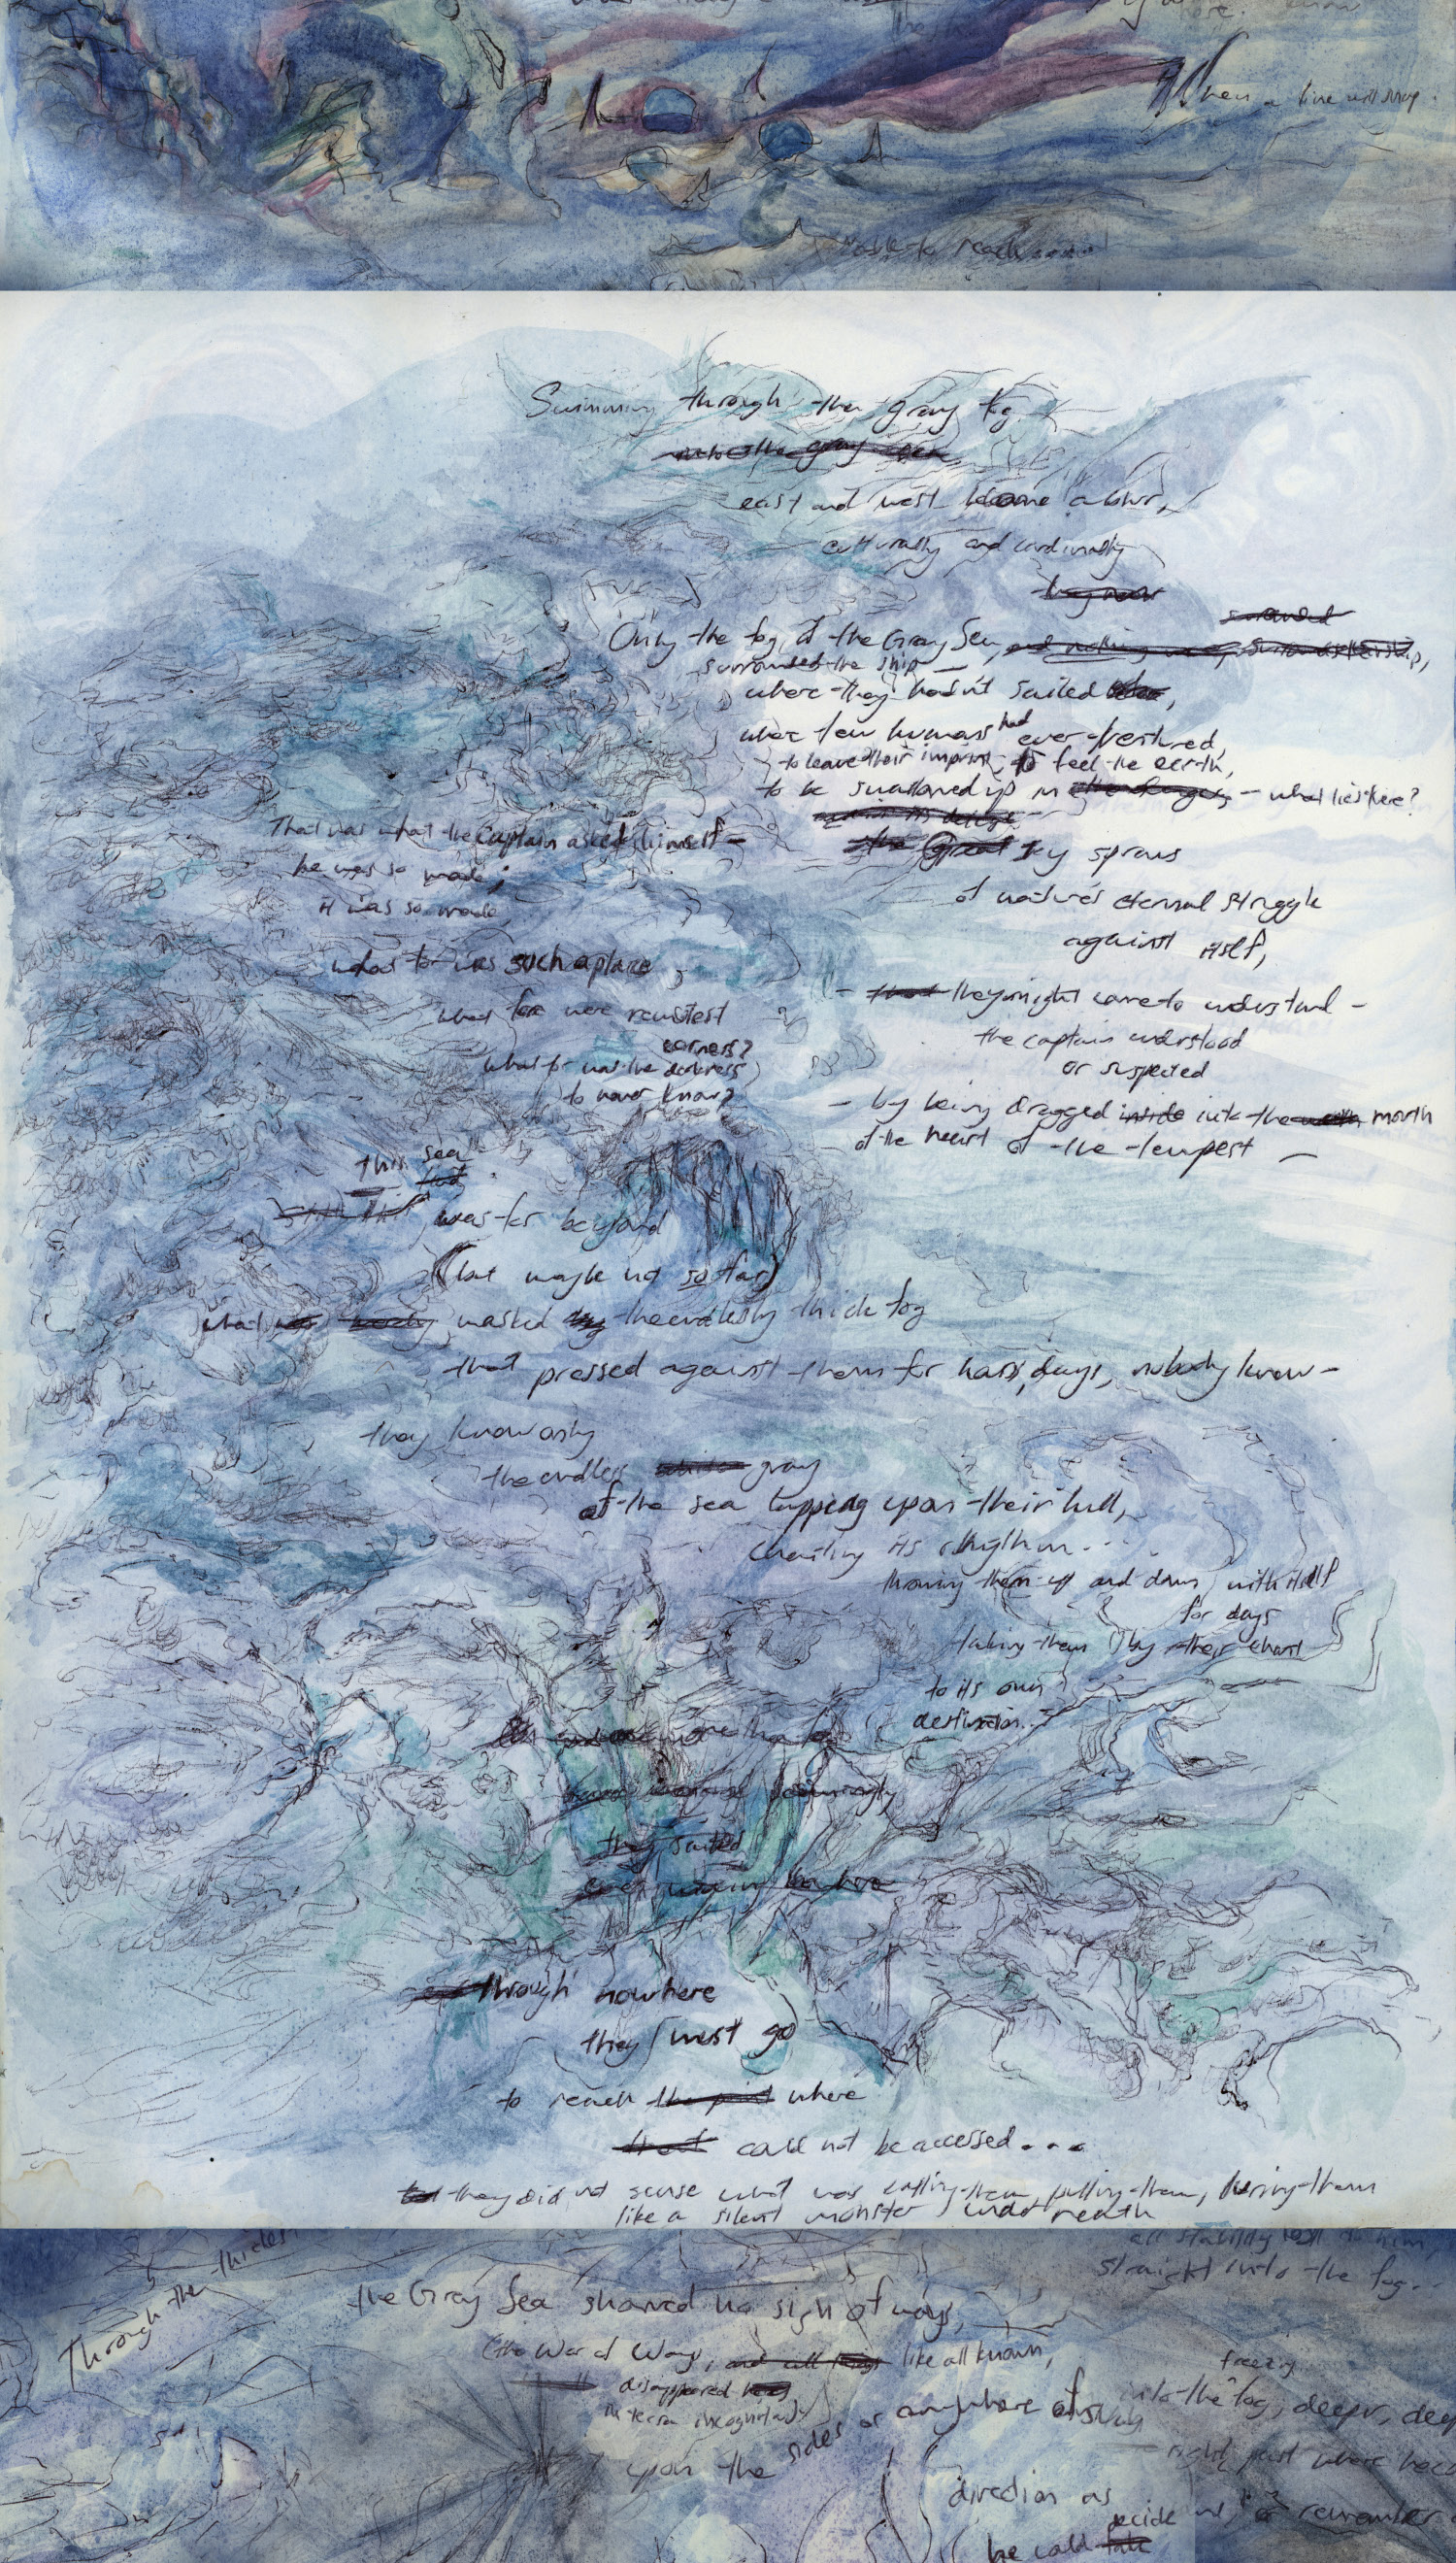 When a line will snap.
able to reach
Swimming through the gray fog
into the gray
east and west become a blur,
culturally and cardinally
they now
Only the fog of the Gray Sea, and nothing
surrounded
surrounded the ship —
where they hadn't sailed
where few humans had ever ventured,
to leave their imprint, to feel the earth,
to be swallowed up in — what lies here?
the Great icy sprays
of nature's eternal struggle
against itself,
— that they might come to understand —
the captain understood
or suspected
— by being dragged inside into the mouth
of the heart of the tempest —
That was what the Captain asked himself —
he was so made;
it was so made
what for was such a place,
what for were remotest
corners?
what for was the darkness
to never know?
This sea
was far beyond
(but maybe not so far)
what was masked by the endlessly thick fog
that pressed against them for hours, days, nobody knew —
they knew only
the endless white gray
of the sea lapping upon their hull,
chanting its rhythm...
throwing them up and down with itself
for days
taking them by their chart
to its own
destination...
more than
seemingly
they sailed
through nowhere
they must go
to reach the point where
that could not be accessed...
but they did not sense what was calling them, pulling them, luring them
like a silent monster underneath
all stability
straight into the fog...
Through the thickest
the Gray Sea showed no sign of ways,
(the War of Ways, and all things like all known,
disappeared here
in terra incognita)
freezing
into the fog, deeper, deep
upon the sides or anywhere
right past where
direction as
decide
remember
he could take